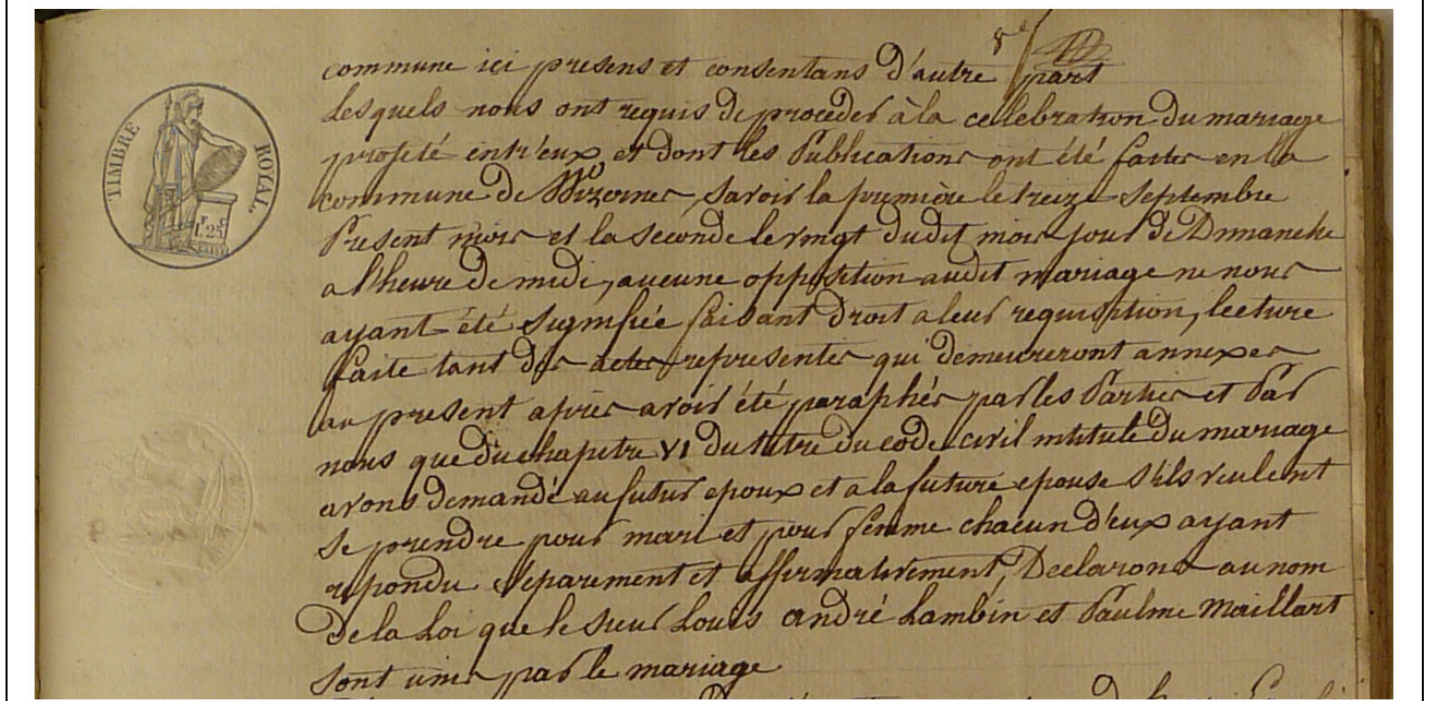 8e
commune ici presens et consentans d'autre part
Lesquels nous ont requis de proceder à la celebration du mariage
projeté entr'eux et dont les Publications ont été faites en la
commune de Wizernes, savoir la première le treize Septembre
Present mois et la seconde le vingt dudit mois jour de Dimanche
a l'heure de midi, aucune opposition audit mariage ne nous
ayant été signifiée faisant droit a leur requisition, lecture
faite tant des actes representés qui demeureront annexes
au present après avoir été paraphés par les Parties et Par
nous que du chapitre VI du titre du code civil intitulé Du mariage
avons demandé au futur epoux et a la future epouse s'ils veulent
se prendre pour mari et pour femme chacun d'eux ayant
repondu séparement et affirmativement, Declarons au nom
De la Loi que le sieur Louis andré Lambin et Pauline Maillart
sont unis par le mariage
TIMBRE ROYAL
1F 25C